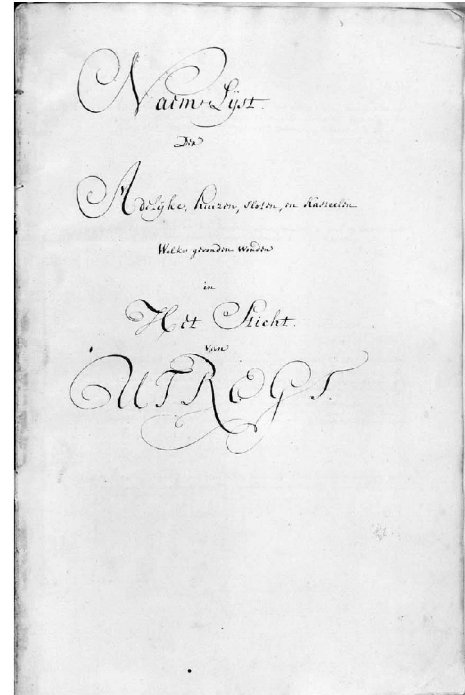 Naem Lyst.
Der
Adelyke, huizen, sloten, en kasteelen
Welke gevonden worden
in
Het Sticht.
van
UTREGT.